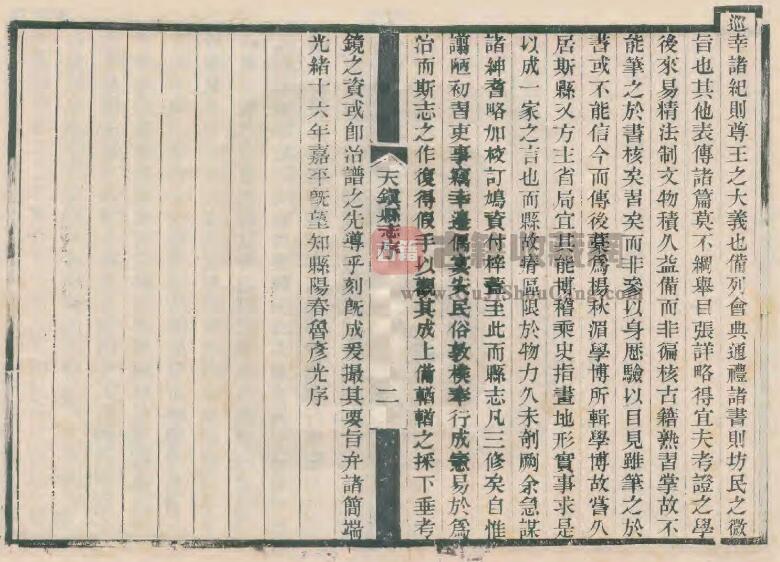 巡幸諸紀則尊王之大義也備列會典通禮諸書則坊民之微
旨也其他表傳諸篇莫不綱舉目張詳略得宜夫考證之學
後來易精法制文物積久益備而非徧核古籍熟習掌故不
能筆之於書核矣習矣而非參以身歷驗以目見雖筆之於
書或不能信今而傳後藁爲楊秋湄學博所輯學博故嘗久
居斯縣又方主省局宜其能博稽乘史指畫地形實事求是
以成一家之言也而縣故瘠區限於物力久未剞劂余急謀
諸紳耆略加校訂鳩資付梓蓋至此而縣志凡三修矣自惟
譾陋初習吏事竊幸邊徼民俗敦樸奉行成憲易於爲
治而斯志之作復得假手以觀其成上備輶軒之採下垂考
天鎮縣志序
二
鏡之資或卽治譜之先導乎刻旣成爰撮其要旨弁諸簡端
光緒十六年嘉平旣望知縣陽春魯彥光序
古籍收藏網
www.GuJiShouCang.com